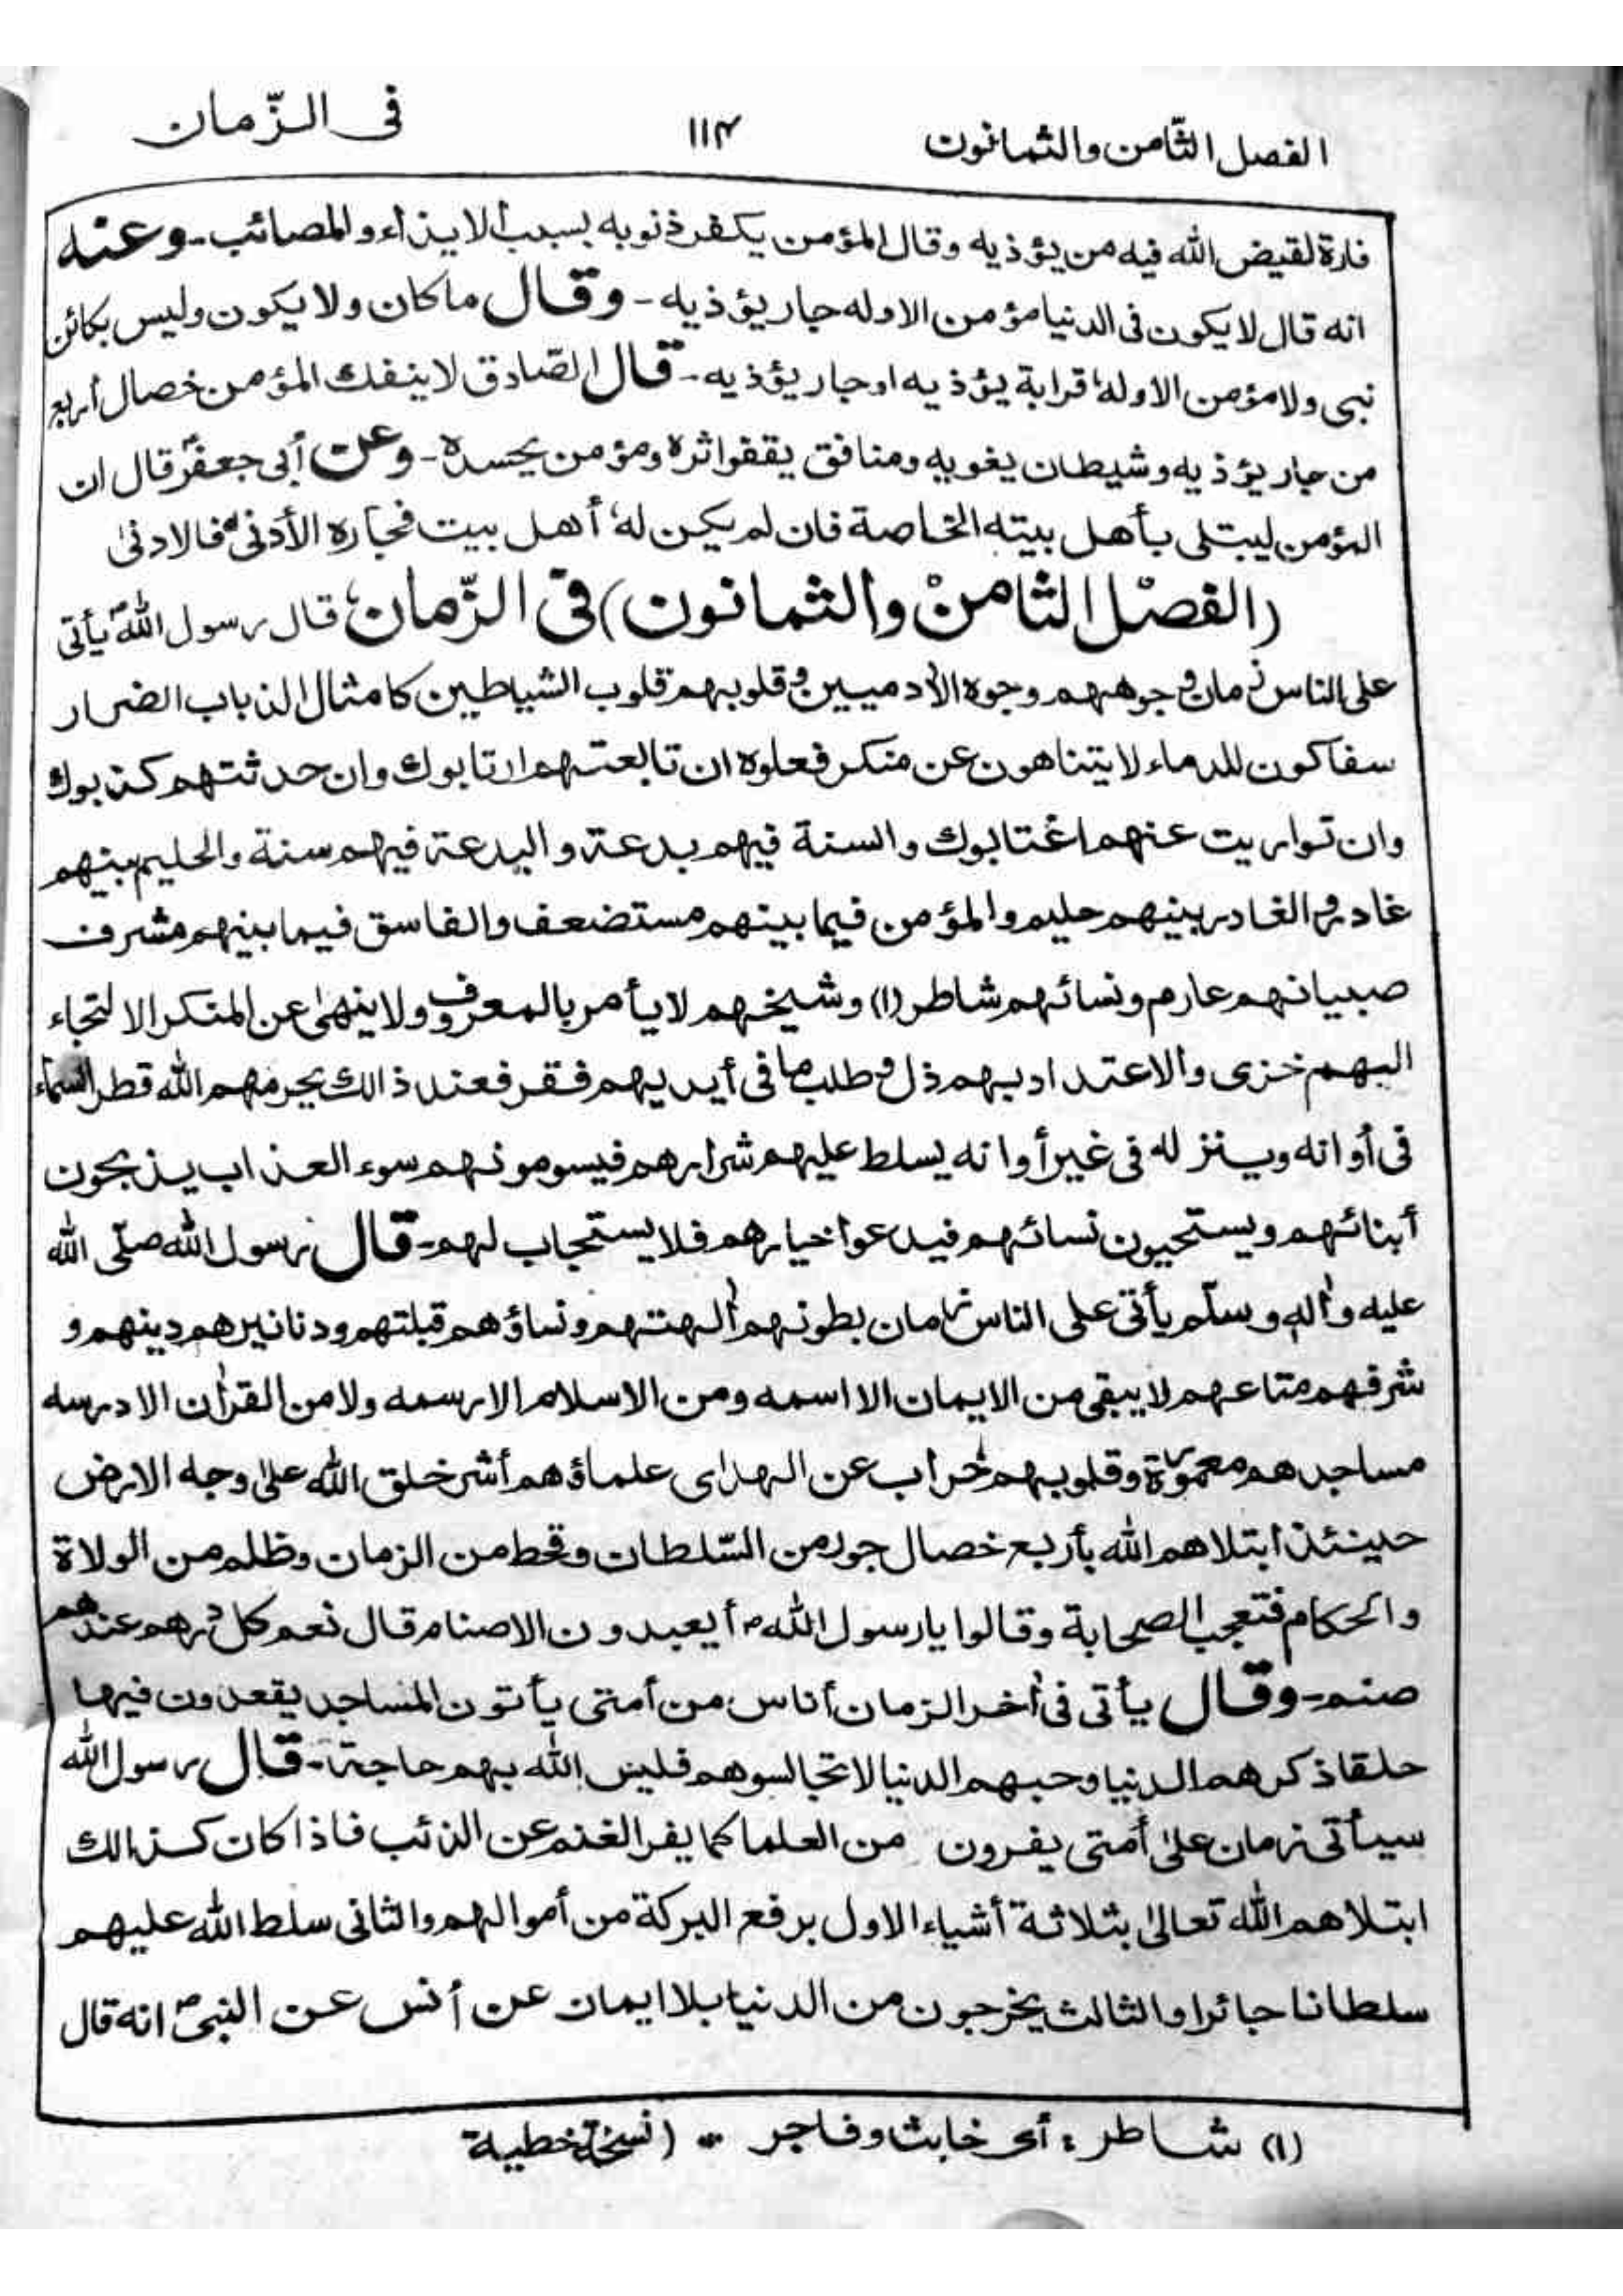 الفصل الثّامن والثمانون ١١٤ فى الزّمان
فارة لقيض الله فيه من يؤذيه وقال المؤمن يكفر ذنوبه بسبب الايذاء والمصائب - وعنه
انه قال لا يكون فى الدنيا مؤمن الا وله جار يؤذيه - وقال ما كان ولا يكون وليس بكائن
نبى ولا مؤمن الا وله قرابة يؤذيه او جار يؤذيه - قال الصّادق لا ينفك المؤمن خصال أربع
من جار يؤذيه وشيطان يغويه ومنافق يقفوا ثره ومؤمن يحسده - وعن أبى جعفرؑ قال ان
المؤمن ليبتلى بأهل بيته الخاصة فان لم يكن له أهل بيت فجاره الأدنى فالادنى
(الفصل الثامن والثمانون) فى الزّمان قال رسول اللهؐ يأتى
على الناس زمان وجوههم وجوه الأدميين وقلوبهم قلوب الشياطين كامثال الذباب الضرار
سفاكون للدماء لا يتناهون عن منكر فعلوه ان تابعتهم ارتابوك وان حدثتهم كذبوك
وان تواريت عنهم اغتابوك والسنة فيهم بدعة والبدعة فيهم سنة والحليم بينهم
غادر والغادر بينهم حليم والمؤمن فيما بينهم مستضعف والفاسق فيما بينهم مشرف
صبيانهم عارم ونسائهم شاطر (١) وشيخهم لا يأمر بالمعروف ولا ينهىٰ عن المنكر الالتجاء
اليهم خزى والاعتداد بهم ذل وطلب ما فى أيديهم فقر فعند ذالك يحرمهم الله قطر السماء
فى أوانه وينزله فى غير أوانه يسلط عليهم شرارهم فيسومونهم سوء العذاب يذبحون
أبنائهم ويستحيون نسائهم فيدعوا خيارهم فلا يستجاب لهم - قال رسول الله صلّى الله
عليه وأله وسلّم يأتى على الناس زمان بطونهم ألهتهم ونساؤهم قبلتهم ودنانيرهم دينهم و
شرفهم متاعهم لا يبقى من الايمان الا اسمه ومن الاسلام الا رسمه ولا من القرأن الا درسه
مساجدهم معمورة وقلوبهم خراب عن الهدى علماؤهم أشر خلق الله علىٰ وجه الارض
حينئذ ابتلاهم الله بأربع خصال جور من السّلطان وقحط من الزمان وظلم من الولاة
والحكام فتعجب الصحابة وقالوا يارسول اللهؐ أيعبدون الاصنام قال نعم كل درهم عندهم
صنم - وقال يأتى فى أخر الزمان أناس من أمتى يأتون المساجد يقعدون فيها
حلقا ذكرهم الدنيا وحبهم الدنيا لا تجالسوهم فليس لله بهم حاجة - قال رسول الله
سيأتى زمان علىٰ أمتى يفرون من العلما كما يفر الغنم عن الذئب فاذا كان كذالك
ابتلاهم الله تعالىٰ بثلاثة أشياء الاول يرفع البركة من أموالهم والثانى سلط الله عليهم
سلطانا جائرا والثالث يخرجون من الدنيا بلا ايمان عن أنس عن النبىؐ انه قال
(١) شاطر : أى خابث وفاجر - (نسخة خطية